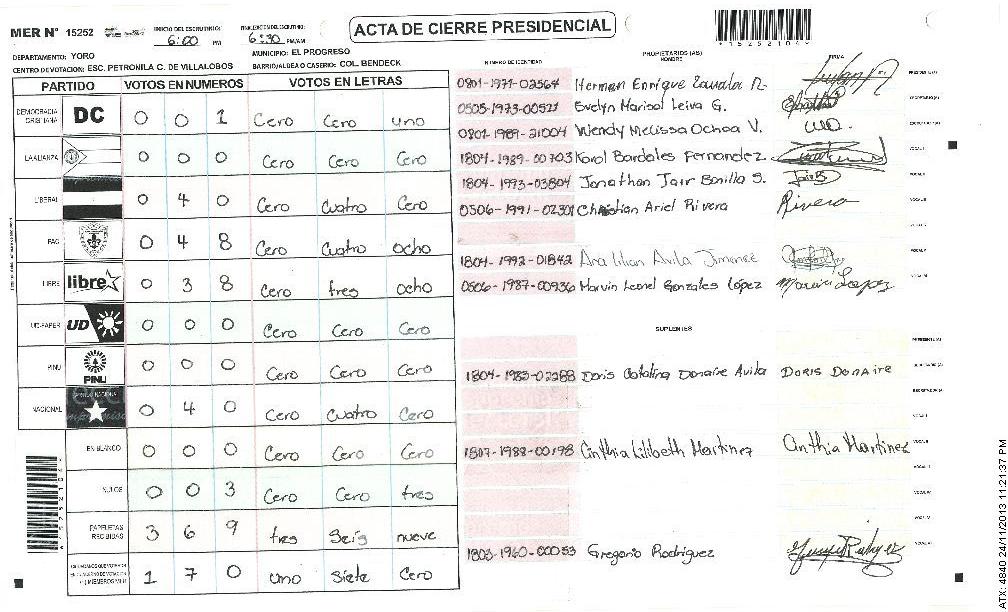 MER Nº 15252
INICIO DEL ESCRUTINIO: 6:00 PM
6:30 PM/AM
ACTA DE CIERRE PRESIDENCIAL
*15252104*
DEPARTAMENTO: YORO
MUNICIPIO: EL PROGRESO
CENTRO DE VOTACION: ESC. PETRONILA C. DE VILLALOBOS
BARRIO/ALDEA O CASERIO: COL. BENDECK
PARTIDO VOTOS EN NUMEROS VOTOS EN LETRAS
DEMOCRACIA CRISTIANA DC 0 0 1 Cero Cero uno
LA ALIANZA 0 0 0 Cero Cero Cero
LIBERAL 0 4 0 Cero Cuatro Cero
PAC 0 4 8 Cero Cuatro ocho
LIBRE libre 0 3 8 Cero tres ocho
UD-FAPER UD 0 0 0 Cero Cero Cero
PINU PINU 0 0 0 Cero Cero Cero
NACIONAL 0 4 0 Cero Cuatro Cero
EN BLANCO 0 0 0 Cero Cero Cero
NULOS 0 0 3 Cero Cero tres
PAPELETAS RECIBIDAS 3 6 9 tres Seis nueve
1 7 0 uno Siete Cero
NUMERO DE IDENTIDAD
PROPIETARIOS (AS)
NOMBRE
FIRMA
0801-1971-02564 Herman Enrique R.
0505-1973-00521 Evelyn Marisol Leiva G.
0801-1989-21004 Wendy Melissa Ochoa V.
1804-1989-00703 Karol Bardales Fernandez
1804-1993-03804 Jonathan Jair Bonilla S. Jair B
0506-1991-02301 Christian Ariel Rivera Rivera
1804-1992-01842 Ana Lilian Avila Jimenez
0506-1987-00936 Marvin Leonel Gonzales López Marvin Lopez
SUPLENTES
1804-1983-02288 Doris Catalina Donaire Avila DORIS DONAIRE
1807-1988-00198 Cinthia Lilibeth Martinez Cinthia Martinez
1803-1960-00053 Gregorio Rodriguez
ATX: 4840 24/11/2013 11:21:37 PM